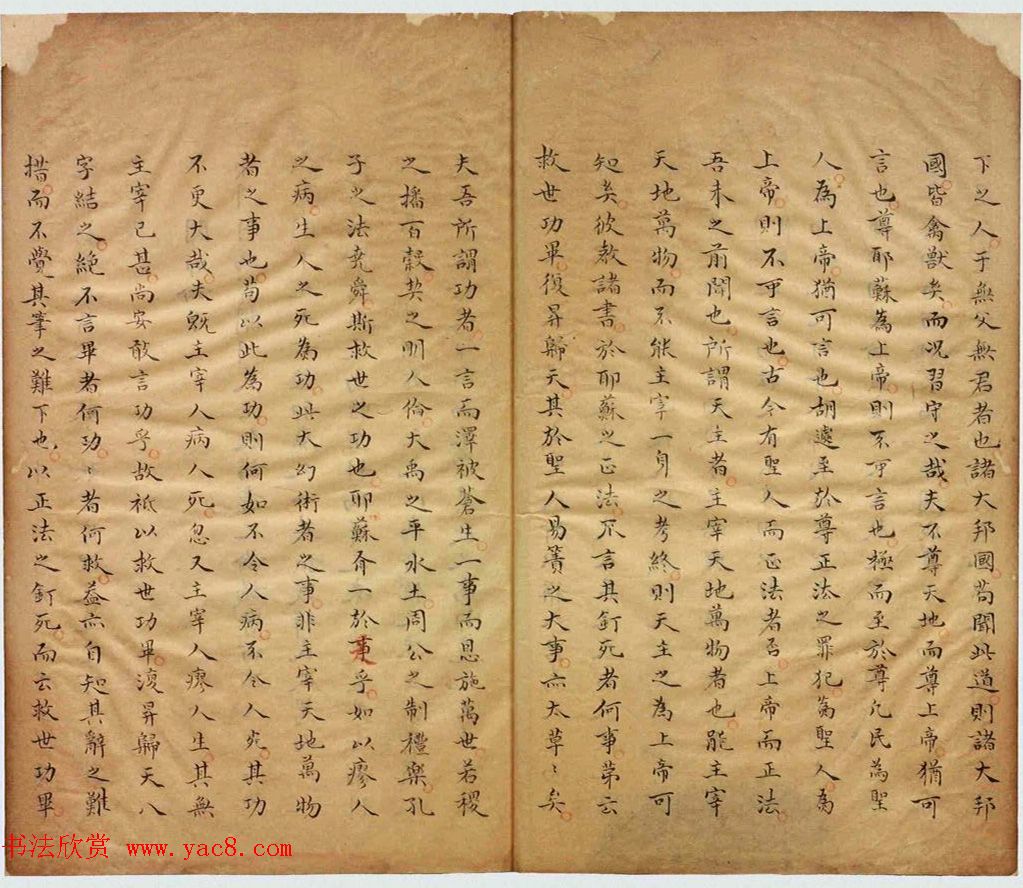 下之人于無父無君者也諸大邦國苟聞此道則諸大邦
國皆禽獸矣而况習守之哉夫不尊天地而尊上帝猶可
言也尊耶蘇為上帝則不可言也極而至於尊凡民為聖
人為上帝猶可言也胡遽至於尊正法之罪犯為聖人為
上帝則不可言也古今有聖人而正法者否上帝而正法
吾未之前聞也所謂天主者主宰天地萬物者也能主宰
天地萬物而不能主宰一身之考終則天主之為上帝可
知矣彼教諸書於耶蘇之正法不言其釘死者何事第云
救世功畢復昇歸天其於聖人易簀之大事亦太草〻矣
夫吾所謂功者一言而澤被蒼生一事而恩施萬世若稷
之播百穀契之明人倫大禹之平水土周公之制禮樂孔
子之法堯舜斯救世之功也耶蘇有一於事乎如以瘳人
之病生人之死為功此大幻術者之事非主宰天地萬物
者之事也苟以此為功則何如不令人病不令人死其功
不更大哉夫既主宰人病人死忽又主宰人瘳人生其無
主宰已甚尚安敢言功乎故祗以救世功畢復昇歸天八
字結之絕不言畢者何功〻者何救益亦自知其辭之難
措而不覺其筆之難下也以正法之釘死而云救世功畢
书法欣赏 www.yac8.com